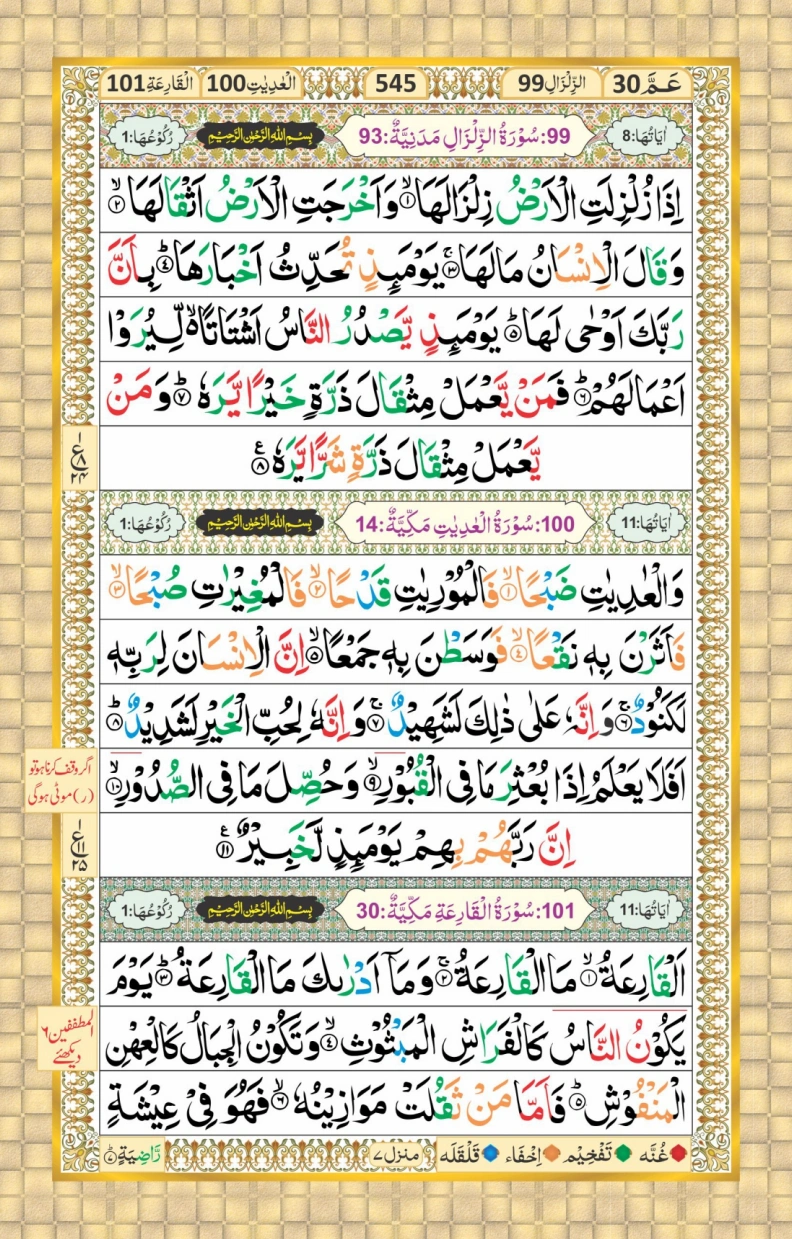 عَمَّ 30 الزِّلْزَال 99 545 الْعٰدِيٰت 100 الْقَارِعَة 101
اٰيَاتُهَا:8 99:سُوْرَةُ الزِّلْزَالِ مَدَنِيَّةٌ:93 بِسْمِ اللّٰهِ الرَّحْمٰنِ الرَّحِيْمِ رُكُوْعُهَا:1
اِذَا زُلْزِلَتِ الْاَرْضُ زِلْزَالَهَا ۙ۝۱ وَاَخْرَجَتِ الْاَرْضُ اَثْقَالَهَا ۙ۝۲
وَقَالَ الْاِنْسَانُ مَا لَهَا ۚ۝۳ يَوْمَىِٕذٍ تُحَدِّثُ اَخْبَارَهَا ؕ۝۴ بِاَنَّ
رَبَّكَ اَوْحٰى لَهَا ؕ۝۵ يَوْمَىِٕذٍ يَّصْدُرُ النَّاسُ اَشْتَاتًا ۙ۬ لِّيُرَوْا
اَعْمَالَهُمْ ؕ۝۶ فَمَنْ يَّعْمَلْ مِثْقَالَ ذَرَّةٍ خَيْرًا يَّرَهٗ ؕ۝۷ وَمَنْ
يَّعْمَلْ مِثْقَالَ ذَرَّةٍ شَرًّا يَّرَهٗ ۠۝۸
ع ۸ ۲۴
اٰيَاتُهَا:11 100:سُوْرَةُ الْعٰدِيٰتِ مَكِّيَّةٌ:14 بِسْمِ اللّٰهِ الرَّحْمٰنِ الرَّحِيْمِ رُكُوْعُهَا:1
وَالْعٰدِيٰتِ ضَبْحًا ۙ۝۱ فَالْمُوْرِيٰتِ قَدْحًا ۙ۝۲ فَالْمُغِيْرٰتِ صُبْحًا ۙ۝۳
فَاَثَرْنَ بِهٖ نَقْعًا ۙ۝۴ فَوَسَطْنَ بِهٖ جَمْعًا ۙ۝۵ اِنَّ الْاِنْسَانَ لِرَبِّهٖ
لَكَنُوْدٌ ۚ۝۶ وَاِنَّهٗ عَلٰى ذٰلِكَ لَشَهِيْدٌ ۚ۝۷ وَاِنَّهٗ لِحُبِّ الْخَيْرِ لَشَدِيْدٌ ؕ۝۸
اَفَلَا يَعْلَمُ اِذَا بُعْثِرَ مَا فِى الْقُبُوْرِ ۙ۝۹ وَحُصِّلَ مَا فِى الصُّدُوْرِ ۙ۝۱۰
اگر وقف کرنا ہو تو
(ر) موٹی ہوگی
اِنَّ رَبَّهُمْ بِهِمْ يَوْمَىِٕذٍ لَّخَبِيْرٌ ۠۝۱۱
ع ۱۱ ۲۵
اٰيَاتُهَا:11 101:سُوْرَةُ الْقَارِعَةِ مَكِّيَّةٌ:30 بِسْمِ اللّٰهِ الرَّحْمٰنِ الرَّحِيْمِ رُكُوْعُهَا:1
اَلْقَارِعَةُ ۙ۝۱ مَا الْقَارِعَةُ ۚ۝۲ وَمَاۤ اَدْرٰىكَ مَا الْقَارِعَةُ ؕ۝۳ يَوْمَ
يَكُوْنُ النَّاسُ كَالْفَرَاشِ الْمَبْثُوْثِ ۙ۝۴ وَتَكُوْنُ الْجِبَالُ كَالْعِهْنِ
المطففین ۶
دیکھئے
الْمَنْفُوْشِ ؕ۝۵ فَاَمَّا مَنْ ثَقُلَتْ مَوَازِيْنُهٗ ۙ۝۶ فَهُوَ فِىْ عِيْشَةٍ
غُنَّه تَفْخِيْم اِخْفَاء قَلْقَلَه منزل ۷ رَّاضِيَةٍ ؕ۝۷